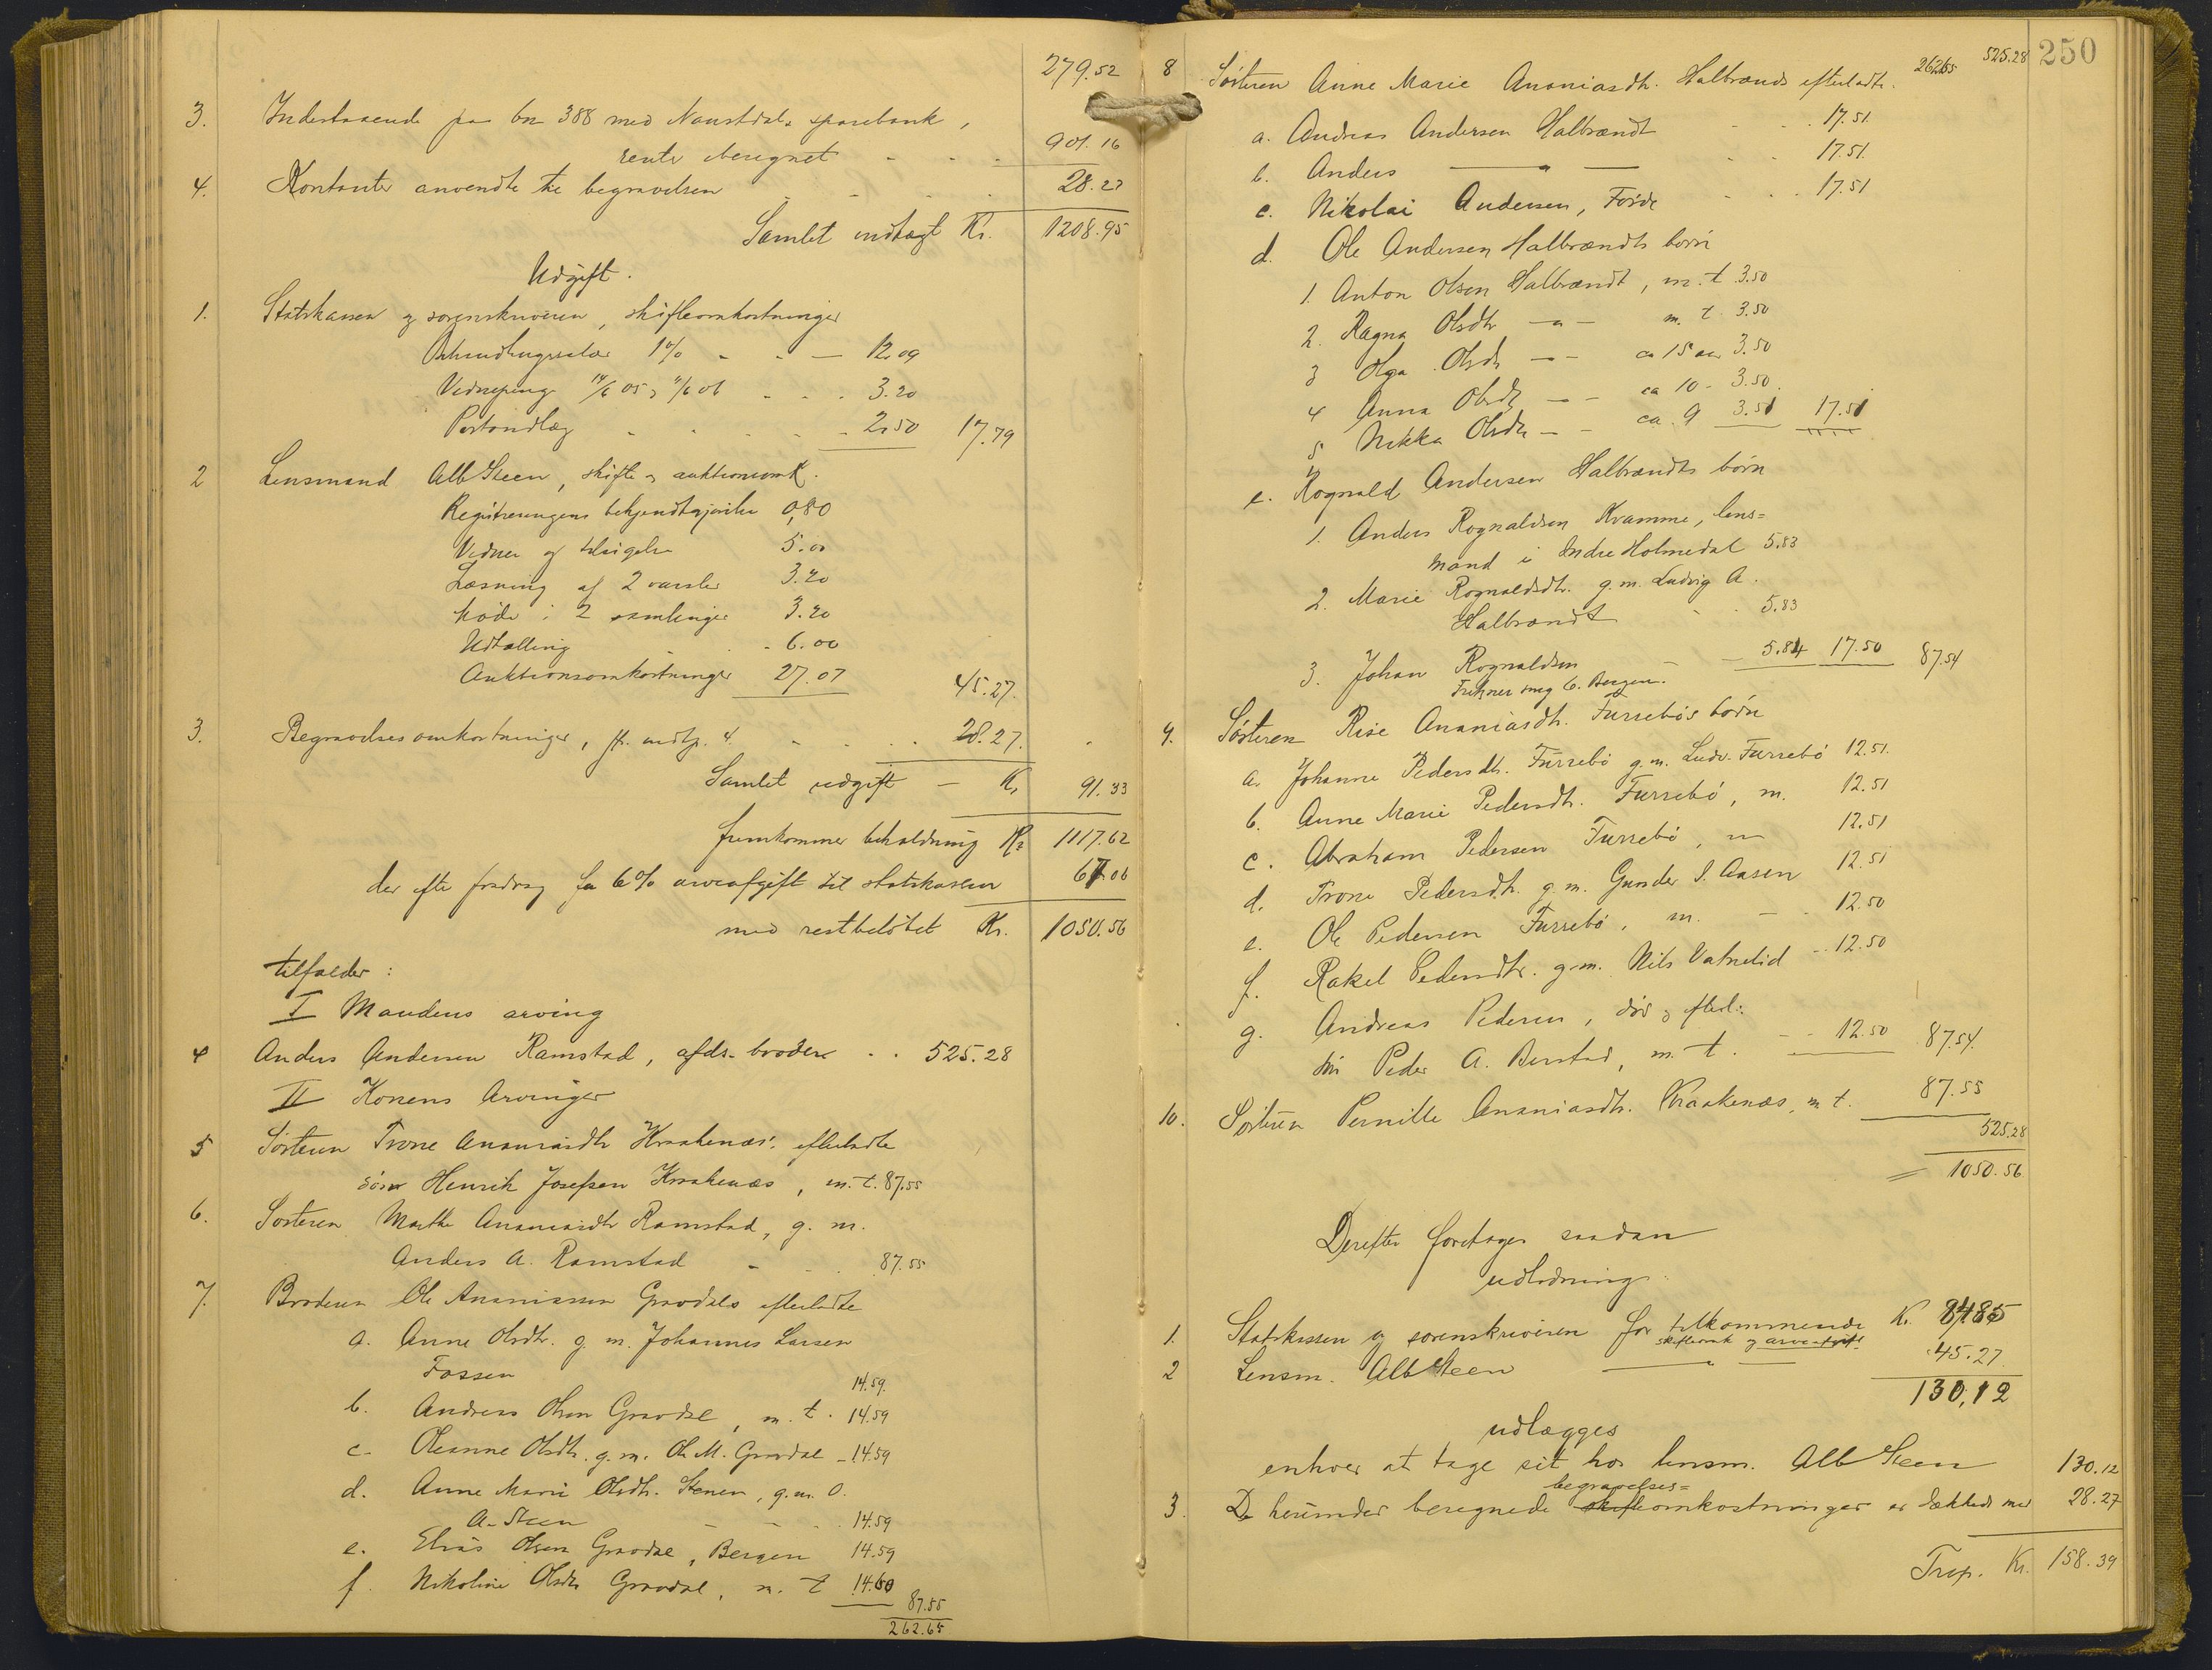 279.52
3. Indestaaende paa bn 388 med Naustdals sparebank,
rente beregnet - - - 901.16
4. Kontanter anvendte til begravelsen - - - 28.27
Samlet indtægt Kr. 1208.95
Udgift.
1. Statskassen og sorenskriveren, skifteomkostninger
Behandlingssalær 1% - - - 12.09
Vidnepenge 14/6 05 3.20
Portoudlæg - - - 2.50 17.79
2 Lensmand Alb Steen, skifte og auktionsomk.
Registreringens bekjendtgjørelse 0,80
Vidner og tilsigelse 5.00
Læsning af 2 varsler 3.20
Møde i 2 samlinger 3.20
Udtælling - 6.00
Auktionsomkostninger 27.07 45.27.
3. Begravelsesomkostninger, jfr. indtg. 4. - - - 28.27.
Samlet udgift - Kr. 91.33
fremkommer beholdning Kr 1117.62
der efter fradrag for 6% arveafgift til statskassen 67.06
med restbeløbet Kr. 1050.56
tilfalder:
I Mandens arving
4 Anders Andersen Ramstad, afds. broder - - 525.28
II Konens Arvinger
5 Søsteren Trone Ananiasdtr Kraakenæs' efterladte
søn Henrik Josefsen Kraakenæs, m. t. 87.55
6. Søsteren Marthe Ananiasdtr Ramstad, g. m.
Anders A. Ramstad - - 87.55
7. Broderen Ole Ananiassen Gravdals efterladte
a. Anne Olsdtr. g. m. Johannes Larsen
Fossen 14.59.
b. Andreas Olsen Gravdal, m. t. 14.59
c. Oleanne Olsdtr. g. m. Ole M. Gravdal - 14.59
d. Anne Marie Olsdtr. Stenen, g. m. O.
A. Steen - - - 14.59
e. Elias Olsen Gravdal, Bergen 14.59
f. Nikoline Olsdtr Gravdal, m. t 14.60
87.55
262.65
250
262.65 525.28
8 Søsteren Anne Marie Ananiasdtr. Halbrends efterladte.
a. Andreas Andersen Halbrændt - - - 17.51.
b. Anders — " — - - 17.51.
c. Nikolai Andersen, Førde - - - 17.51
d. Ole Andersen Halbrændts børn
1. Anton Olsen Halbrændt, m. t 3.50
2. Ragna Olsdtr — " — m. t 3.50
3 Olga Olsdtr — " — ca 15 aar 3.50
4 Anna Olsdtr — " — ca 10 - 3.50.
5 Nikka Olsdtr — - ca. 9 3.51 17.51
e. Rognald Andersen Halbrændts børn
1. Anders Rognaldsen Kvamme, lens=
mand i Indre Holmedal 5.83
2. Marie Rognaldsdtr. g. m. Ludvig A.
Halbrændt - - 5.83
3. Johan Rognaldsen - - 5.84 17.50 87.54
6. Bergen.
9. Søsteren Rise Ananiasdtr. Furrebøs børn
a. Johanne Pedersdtr. Furrebø g. m. Ludv. Furrebø 12.51.
b. Anne Marie Pedersdtr. Furrebø, m. 12.51
c. Abraham Pedersen Furrebø, m 12.51
d. Trone Pedersdtr. g. m. Gunder I. Aasen 12.51
e. Ole Pedersen Furrebø, m. - - 12.50
f. Rakel Pedersdtr. g. m. Nils Vatnelid - 12.50
g. Andreas Pedersen, død, efterl.
søn Peder A. Berstad, m. t. - - 12.50 87.54.
10. Søsteren Pernille Ananiasdtr. Kraakenæs, m t. 87.55
525.28
= 1050.56
Derefter foretages saadan
udlodning:
1. Statskassen og sorenskriveren for tilkommende Kr. 84.85
skifteomk og arveafgift
2 Lensm. Alb Steen — " — 45.27.
130,12
udlægges
enhver at tage sit hos lensm. Alb Steen 130.12
begravelses=
3. De herunder beregnede skifteomkostninger er dækkede med 28.27
Trsp. Kr. 158.39